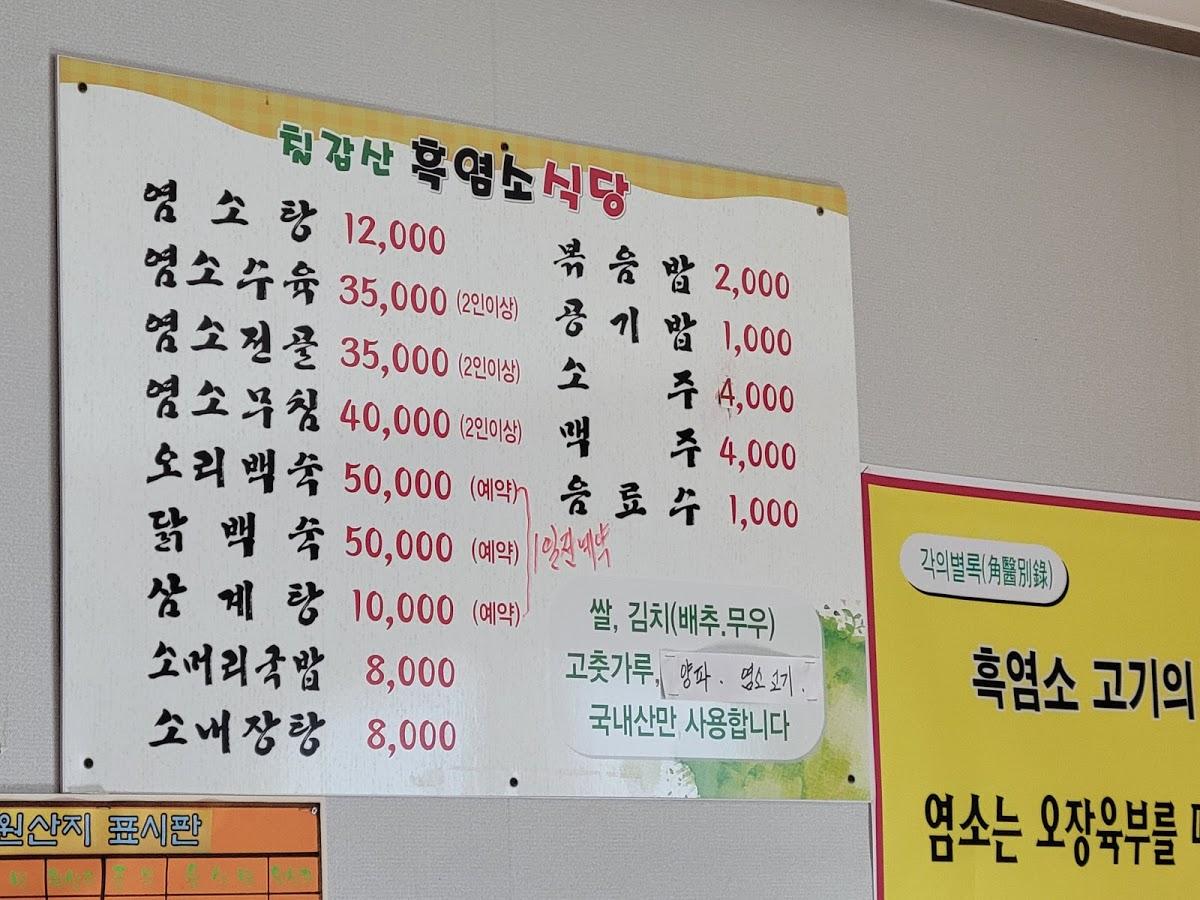 칠갑산 흑염소식당
염소탕 12,000
염소수육 35,000 (2인이상)
염소전골 35,000 (2인이상)
염소무침 40,000 (2인이상)
오리백숙 50,000 (예약)
닭백숙 50,000 (예약)
삼계탕 10,000 (예약)
1일전예약
소머리국밥 8,000
소내장탕 8,000
볶음밥 2,000
공기밥 1,000
소주 4,000
맥주 4,000
음료수 1,000
쌀, 김치(배추.무우)
고춧가루, 양파. 염소고기.
국내산만 사용합니다
각의별록(角醫別錄)
흑염소 고기의
염소는 오장육부를
원산지 표시판